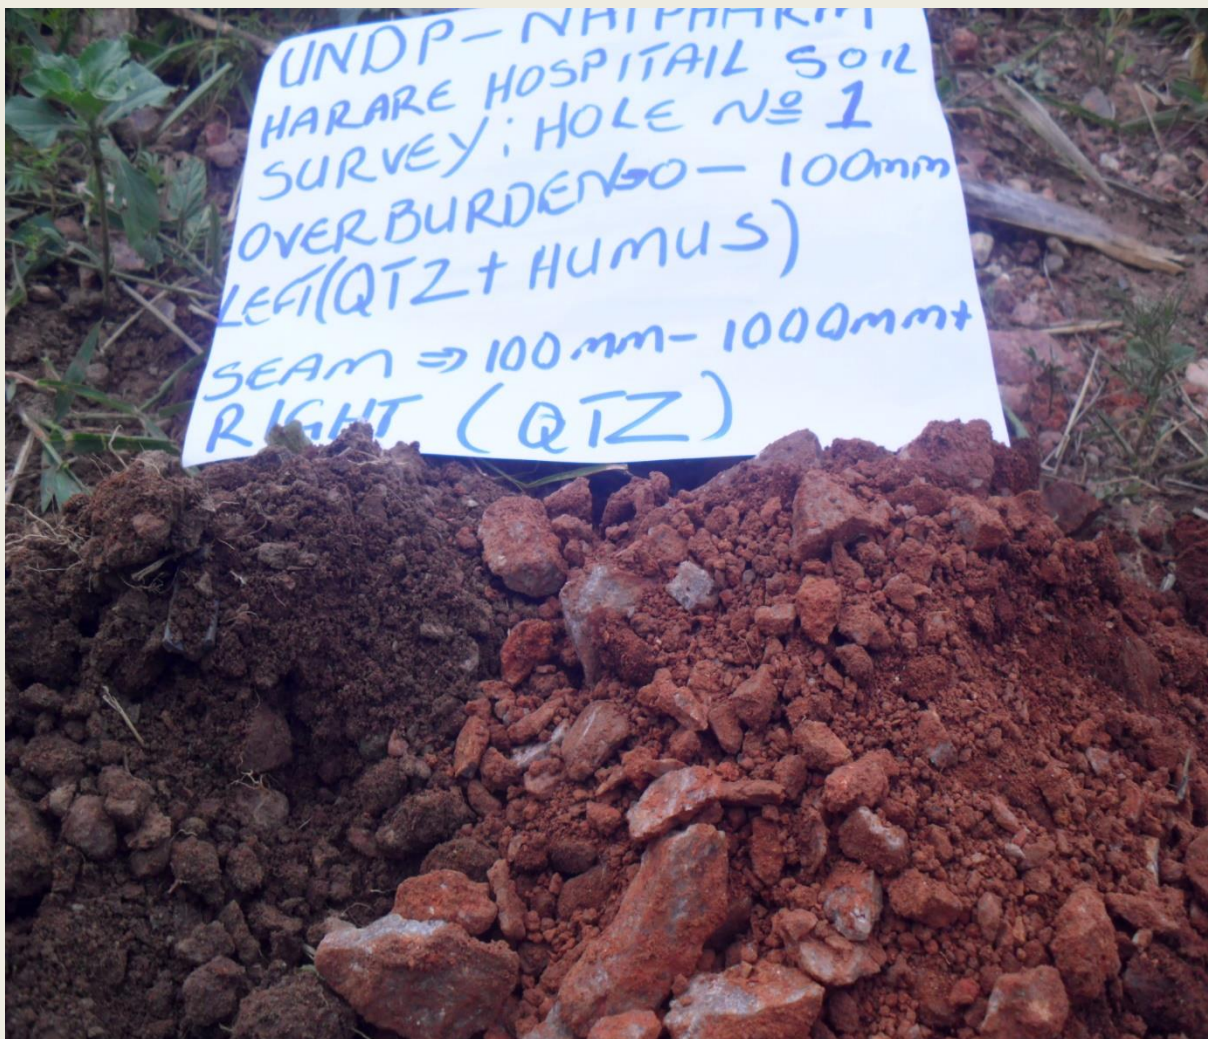 UNDP-NATPHARM
HARARE HOSPITAIL SOIL
SURVEY; HOLE Nº 1
OVERBURDEN→0-100mm
LEFT(QTZ+HUMUS)
SEAM ⇒ 100mm-1000mm+
RIGHT (QTZ)